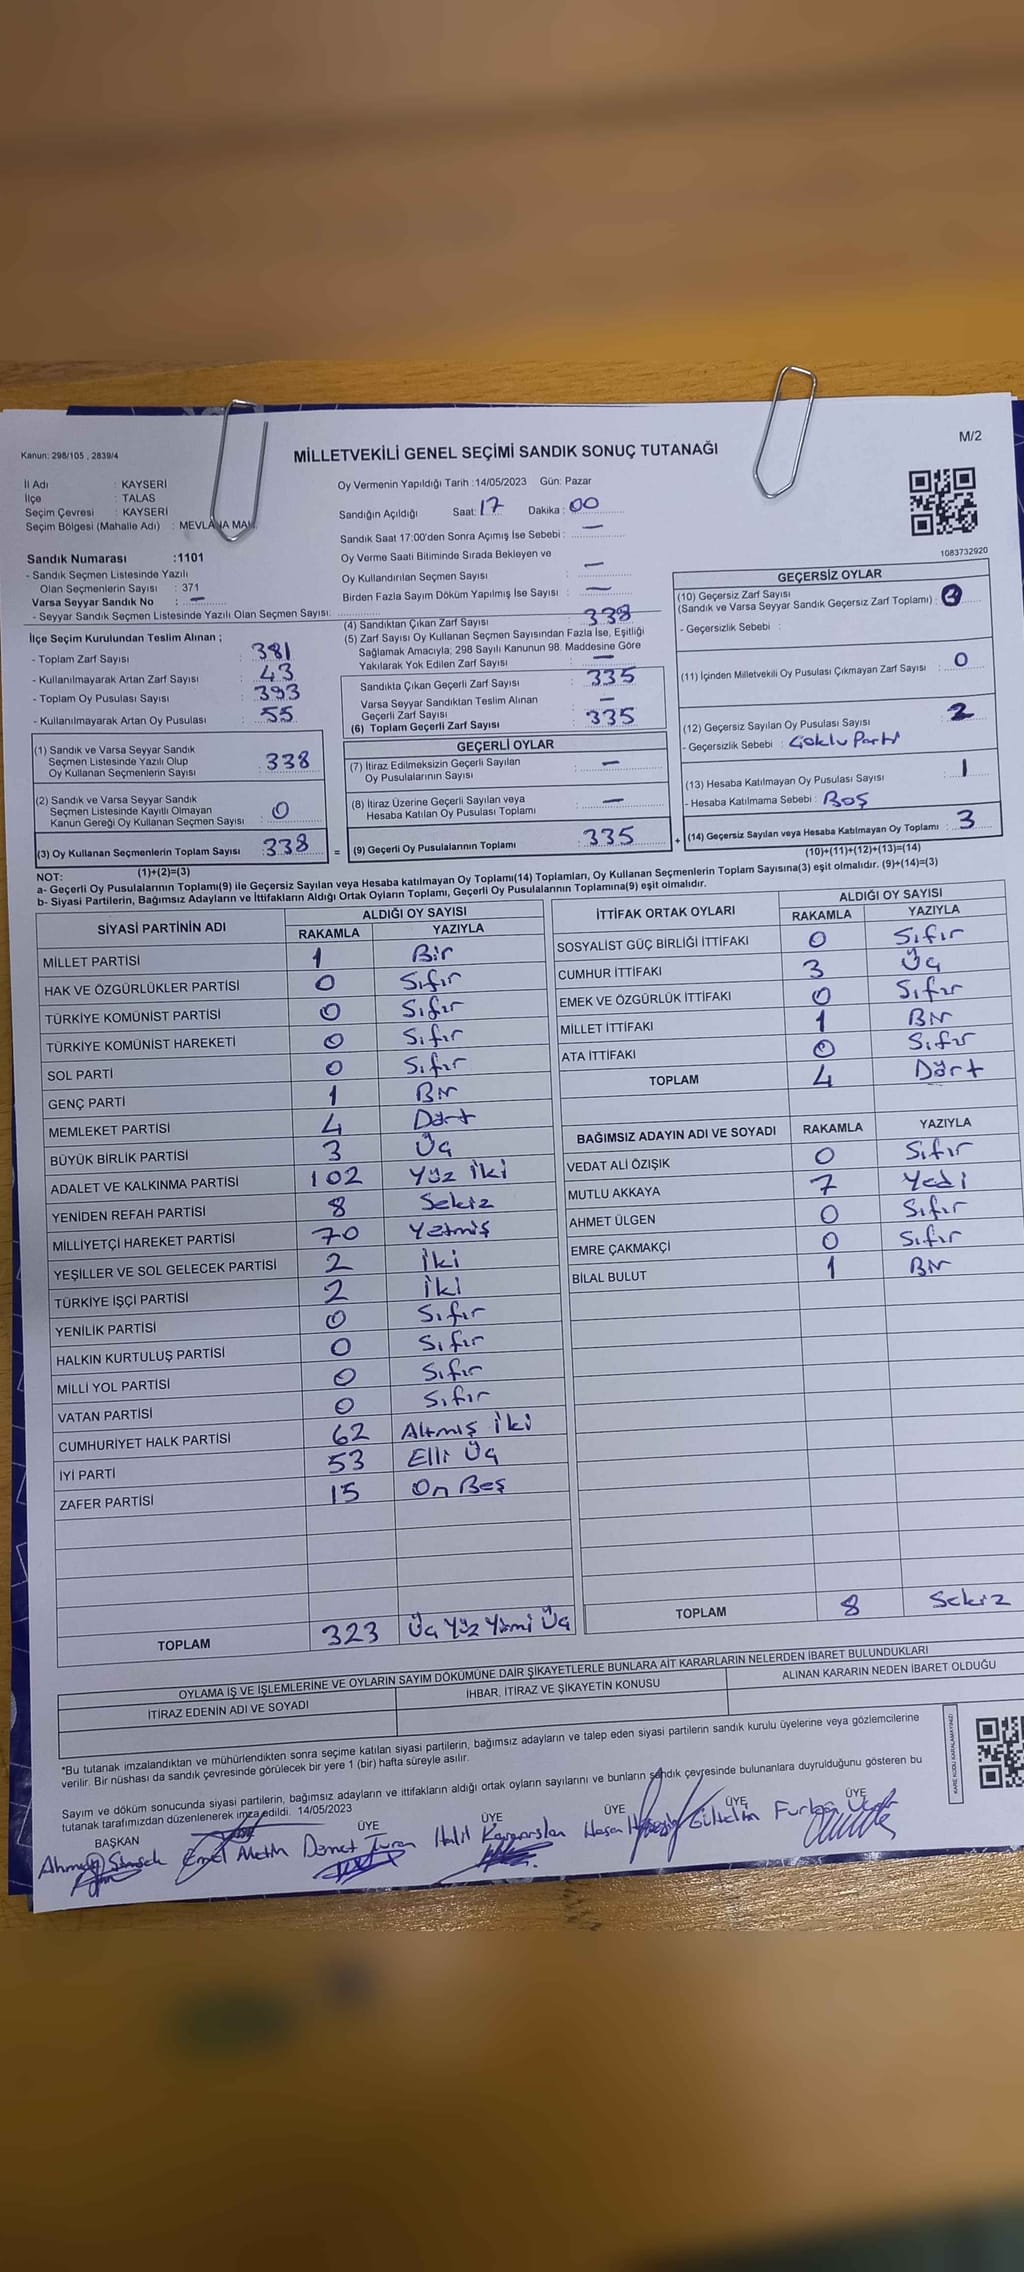 Kanun: 298/105 , 2839/4
MİLLETVEKİLİ GENEL SEÇİMİ SANDIK SONUÇ TUTANAĞI
M/2
İl Adı : KAYSERİ
İlçe : TALAS
Seçim Çevresi : KAYSERİ
Seçim Bölgesi (Mahalle Adı) : MEVLANA MAH.
Sandık Numarası :1101
- Sandık Seçmen Listesinde Yazılı
Olan Seçmenlerin Sayısı : 371
Varsa Seyyar Sandık No : —
- Seyyar Sandık Seçmen Listesinde Yazılı Olan Seçmen Sayısı:
Oy Vermenin Yapıldığı Tarih :14/05/2023 Gün: Pazar
Sandığın Açıldığı Saat: 17 Dakika : 00
Sandık Saat 17:00'den Sonra Açımış İse Sebebi : —
Oy Verme Saati Bitiminde Sırada Bekleyen ve
Oy Kullandırılan Seçmen Sayısı : —
Birden Fazla Sayım Döküm Yapılmış İse Sayısı : —
1083732920
İlçe Seçim Kurulundan Teslim Alınan ;
- Toplam Zarf Sayısı : 381
- Kullanılmayarak Artan Zarf Sayısı : 43
- Toplam Oy Pusulası Sayısı : 393
- Kullanılmayarak Artan Oy Pusulası : 55
(1) Sandık ve Varsa Seyyar Sandık
Seçmen Listesinde Yazılı Olup
Oy Kullanan Seçmenlerin Sayısı : 338
(2) Sandık ve Varsa Seyyar Sandık
Seçmen Listesinde Kayıtlı Olmayan
Kanun Gereği Oy Kullanan Seçmen Sayısı : 0
(3) Oy Kullanan Seçmenlerin Toplam Sayısı : 338
(1)+(2)=(3)
(4) Sandıktan Çıkan Zarf Sayısı : 338
(5) Zarf Sayısı Oy Kullanan Seçmen Sayısından Fazla İse, Eşitliği
Sağlamak Amacıyla; 298 Sayılı Kanunun 98. Maddesine Göre
Yakılarak Yok Edilen Zarf Sayısı : —
Sandıkta Çıkan Geçerli Zarf Sayısı : 335
Varsa Seyyar Sandıktan Teslim Alınan
Geçerli Zarf Sayısı : —
(6) Toplam Geçerli Zarf Sayısı : 335
GEÇERLİ OYLAR
(7) İtiraz Edilmeksizin Geçerli Sayılan
Oy Pusulalarının Sayısı : —
(8) İtiraz Üzerine Geçerli Sayılan veya
Hesaba Katılan Oy Pusulası Toplamı : —
= (9) Geçerli Oy Pusulalarının Toplamı : 335
GEÇERSİZ OYLAR
(10) Geçersiz Zarf Sayısı
(Sandık ve Varsa Seyyar Sandık Geçersiz Zarf Toplamı) :
- Geçersizlik Sebebi :
(11) İçinden Milletvekili Oy Pusulası Çıkmayan Zarf Sayısı : 0
(12) Geçersiz Sayılan Oy Pusulası Sayısı : 2
- Geçersizlik Sebebi : Çoklu Parti
(13) Hesaba Katılmayan Oy Pusulası Sayısı : 1
- Hesaba Katılmama Sebebi : Boş
+ (14) Geçersiz Sayılan veya Hesaba Katılmayan Oy Toplamı : 3
(10)+(11)+(12)+(13)=(14)
NOT:
a- Geçerli Oy Pusulalarının Toplamı(9) ile Geçersiz Sayılan veya Hesaba katılmayan Oy Toplamı(14) Toplamları, Oy Kullanan Seçmenlerin Toplam Sayısına(3) eşit olmalıdır. (9)+(14)=(3)
b- Siyasi Partilerin, Bağımsız Adayların ve İttifakların Aldığı Ortak Oyların Toplamı, Geçerli Oy Pusulalarının Toplamına(9) eşit olmalıdır.
SİYASİ PARTİNİN ADI ALDIĞI OY SAYISI
RAKAMLA YAZIYLA
MİLLET PARTİSİ 1 Bir
HAK VE ÖZGÜRLÜKLER PARTİSİ 0 Sıfır
TÜRKİYE KOMÜNİST PARTİSİ 0 Sıfır
TÜRKİYE KOMÜNİST HAREKETİ 0 Sıfır
SOL PARTİ 0 Sıfır
GENÇ PARTİ 1 Bir
MEMLEKET PARTİSİ 4 Dört
BÜYÜK BİRLİK PARTİSİ 3 Üç
ADALET VE KALKINMA PARTİSİ 102 Yüz İki
YENİDEN REFAH PARTİSİ 8 Sekiz
MİLLİYETÇİ HAREKET PARTİSİ 70 Yetmiş
YEŞİLLER VE SOL GELECEK PARTİSİ 2 İki
TÜRKİYE İŞÇİ PARTİSİ 2 İki
YENİLİK PARTİSİ 0 Sıfır
HALKIN KURTULUŞ PARTİSİ 0 Sıfır
MİLLİ YOL PARTİSİ 0 Sıfır
VATAN PARTİSİ 0 Sıfır
CUMHURİYET HALK PARTİSİ 62 Altmış İki
İYİ PARTİ 53 Elli Üç
ZAFER PARTİSİ 15 On Beş
TOPLAM 323 Üç Yüz Yirmi Üç
İTTİFAK ORTAK OYLARI ALDIĞI OY SAYISI
RAKAMLA YAZIYLA
SOSYALİST GÜÇ BİRLİĞİ İTTİFAKI 0 Sıfır
CUMHUR İTTİFAKI 3 Üç
EMEK VE ÖZGÜRLÜK İTTİFAKI 0 Sıfır
MİLLET İTTİFAKI 1 Bir
ATA İTTİFAKI 0 Sıfır
TOPLAM 4 Dört
BAĞIMSIZ ADAYIN ADI VE SOYADI RAKAMLA YAZIYLA
VEDAT ALİ ÖZIŞIK 0 Sıfır
MUTLU AKKAYA 7 Yedi
AHMET ÜLGEN 0 Sıfır
EMRE ÇAKMAKÇİ 0 Sıfır
BİLAL BULUT 1 Bir
TOPLAM 8 Sekiz
OYLAMA İŞ VE İŞLEMLERİNE VE OYLARIN SAYIM DÖKÜMÜNE DAİR ŞİKAYETLERLE BUNLARA AİT KARARLARIN NELERDEN İBARET BULUNDUKLARI
İTİRAZ EDENİN ADI VE SOYADI İHBAR, İTİRAZ VE ŞİKAYETİN KONUSU ALINAN KARARIN NEDEN İBARET OLDUĞU
*Bu tutanak imzalandıktan ve mühürlendikten sonra seçime katılan siyasi partilerin, bağımsız adayların ve talep eden siyasi partilerin sandık kurulu üyelerine veya gözlemcilerine
verilir. Bir nüshası da sandık çevresinde görülecek bir yere 1 (bir) hafta süreyle asılır.
Sayım ve döküm sonucunda siyasi partilerin, bağımsız adayların ve ittifakların aldığı ortak oyların sayılarını ve bunların sandık çevresinde bulunanlara duyrulduğunu gösteren bu
tutanak tarafımızdan düzenlenerek imza edildi. 14/05/2023
BAŞKAN ÜYE ÜYE ÜYE ÜYE ÜYE
Ahmet Emel Metin Demet Turan Halil Karaarslan Hasan Gültekin Furkan